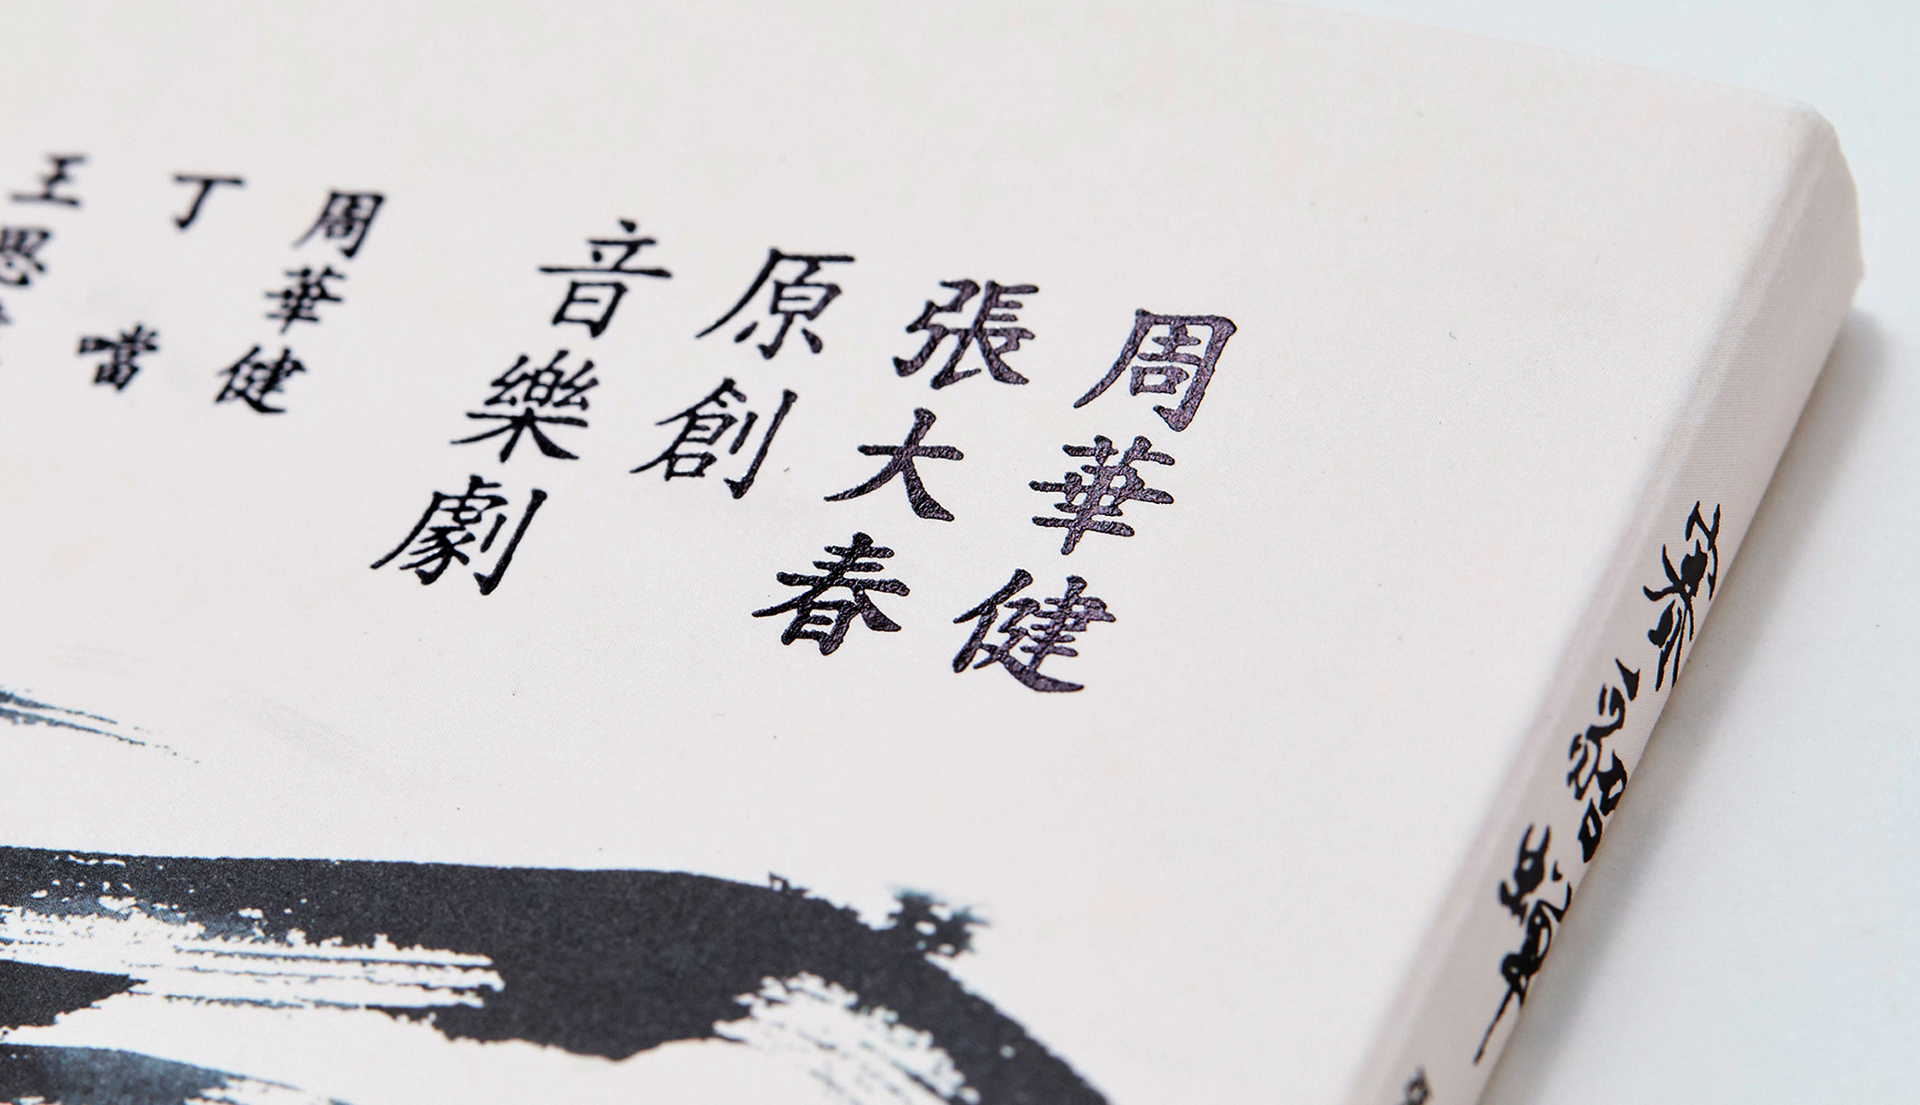 周華健
張大春
原創
音樂劇
周華健
丁噹
王思